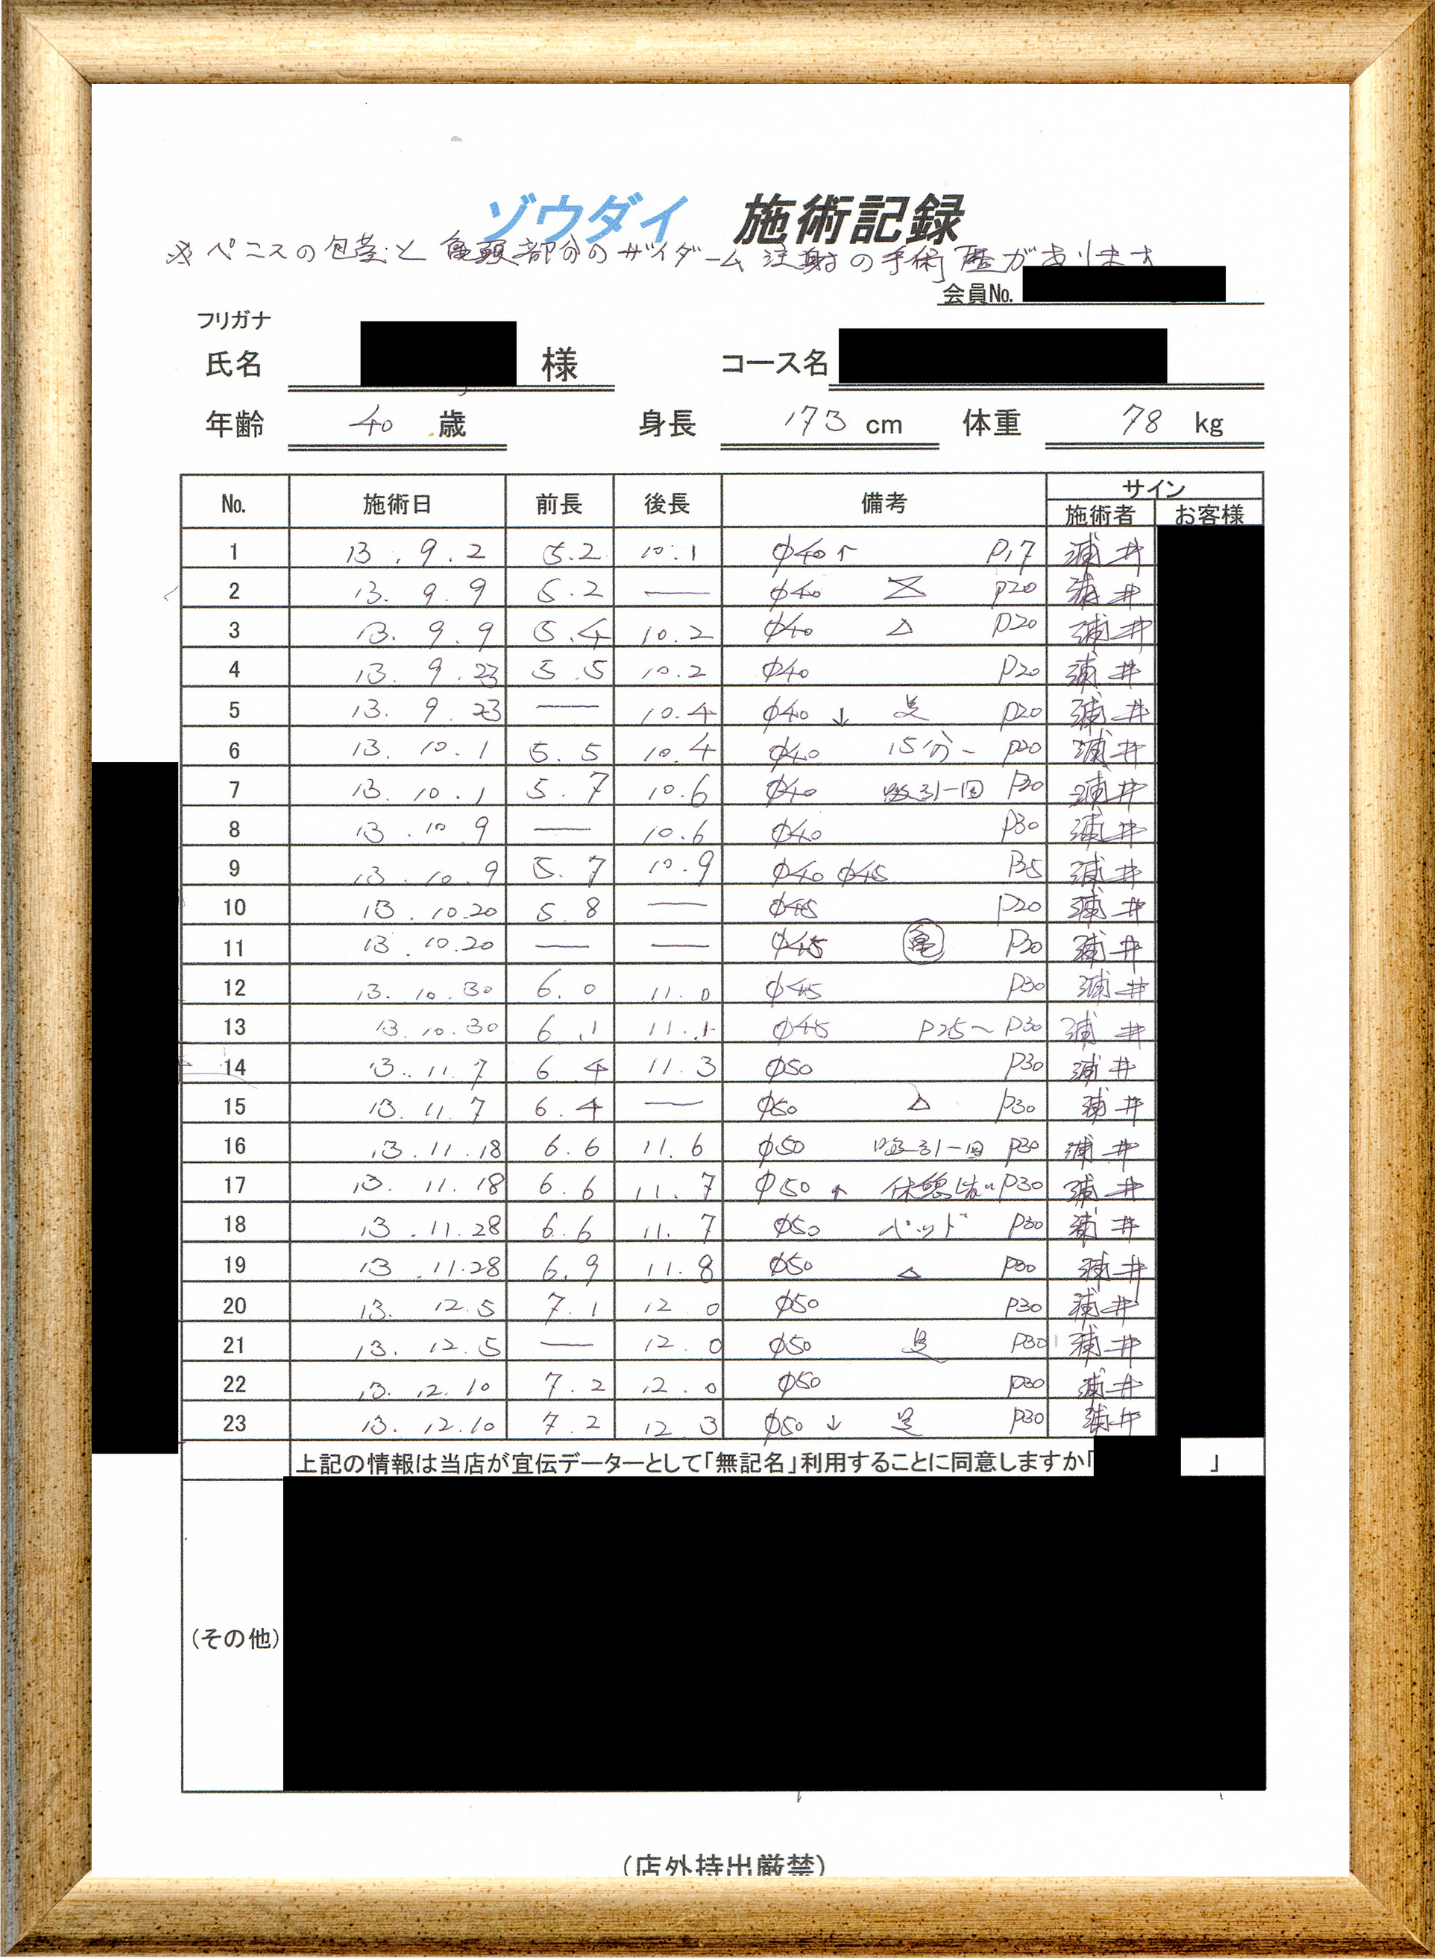 ゾウダイ 施術記録
※ペニスの包茎と亀頭部分のザイダーム注射の手術歴があります
会員No.
フリガナ
氏名 様 コース名
年齢 40 歳 身長 173 cm 体重 78 kg
No. 施術日 前長 後長 備考 サイン
施術者 お客様
1 13.9.2 5.2 10.1 φ40↑ P17 浦井
2 13.9.9 5.2 — φ40 P20 浦井
3 13.9.9 5.4 10.2 φ40 △ P20 浦井
4 13.9.23 5.5 10.2 φ40 P20 浦井
5 13.9.23 — 10.4 φ40 ↓ 足 P20 浦井
6 13.10.1 5.5 10.4 φ40 15分~ P20 浦井
7 13.10.1 5.7 10.6 φ40 吸引一回 P30 浦井
8 13.10.9 — 10.6 φ40 P30 浦井
9 13.10.9 5.7 10.9 φ40 φ45 P35 浦井
10 13.10.20 5.8 — φ45 P20 浦井
11 13.10.20 — — φ45 亀 P30 浦井
12 13.10.30 6.0 11.0 φ45 P30 浦井
13 13.10.30 6.1 11.1 φ45 P25～P30 浦井
14 13.11.7 6.4 11.3 φ50 P30 浦井
15 13.11.7 6.4 — φ50 △ P30 浦井
16 13.11.18 6.6 11.6 φ50 吸引一回 P30 浦井
17 13.11.18 6.6 11.7 φ50 ↑ 休憩 P30 浦井
18 13.11.28 6.6 11.7 φ50 ベッド P30 浦井
19 13.11.28 6.9 11.8 φ50 △ P30 浦井
20 13.12.5 7.1 12.0 φ50 P30 浦井
21 13.12.5 — 12.0 φ50 足 P30 浦井
22 13.12.10 7.2 12.0 φ50 P30 浦井
23 13.12.10 7.2 12.3 φ50 ↓ 足 P30 浦井
上記の情報は当店が宣伝データーとして「無記名」利用することに同意しますか「 」
(その他)
(店外持出厳禁)